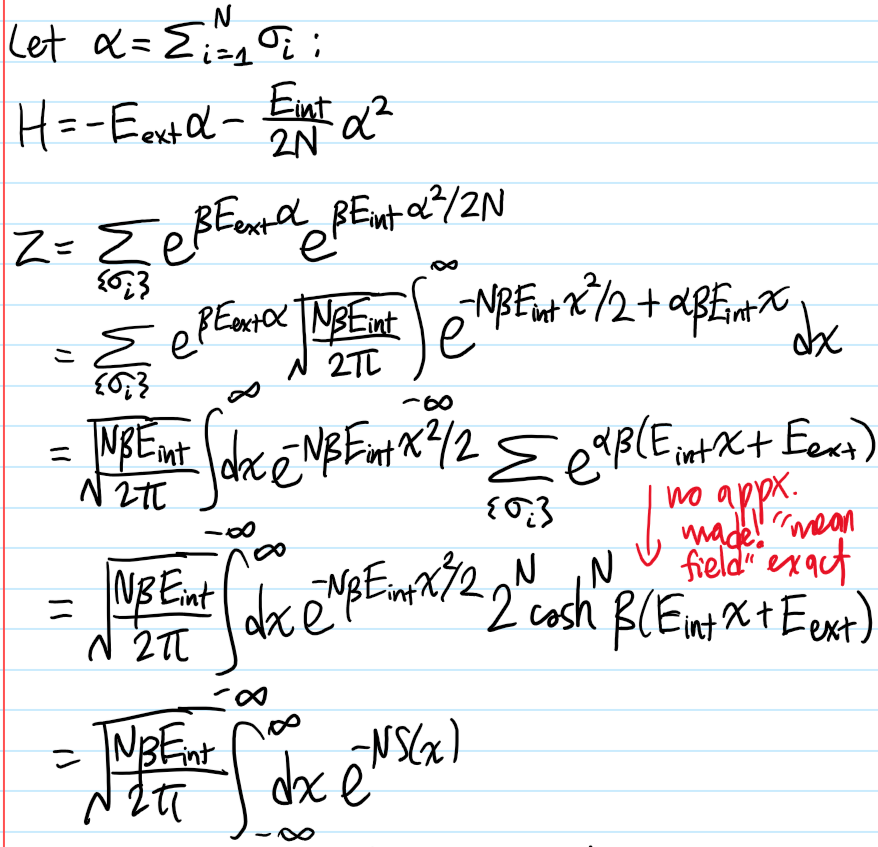 Let α = Σ_{i=1}^{N} σ_i :
H = -E_ext α - \frac{E_int}{2N} α^2
Z = Σ_{\{σ_i\}} e^{βE_ext α} e^{βE_int α^2/2N}
= Σ_{\{σ_i\}} e^{βE_ext α} \sqrt{\frac{NβE_int}{2π}} ∫_{-∞}^{∞} e^{-NβE_int x^2/2 + αβE_int x} dx
= \sqrt{\frac{NβE_int}{2π}} ∫_{-∞}^{∞} dx e^{-NβE_int x^2/2} Σ_{\{σ_i\}} e^{αβ(E_int x + E_ext)}
↓ no appx.
made! "mean
field" exact
= \sqrt{\frac{NβE_int}{2π}} ∫_{-∞}^{∞} dx e^{-NβE_int x^2/2} 2^N cosh^N β(E_int x + E_ext)
= \sqrt{\frac{NβE_int}{2π}} ∫_{-∞}^{∞} dx e^{-NS(x)}